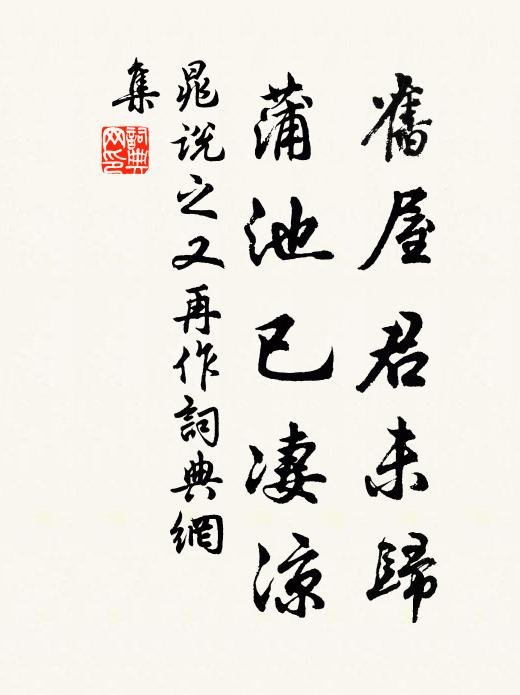 舊屋君未歸
蒲池已凄涼
晁説之又再作詞典網
集
詞典
网印